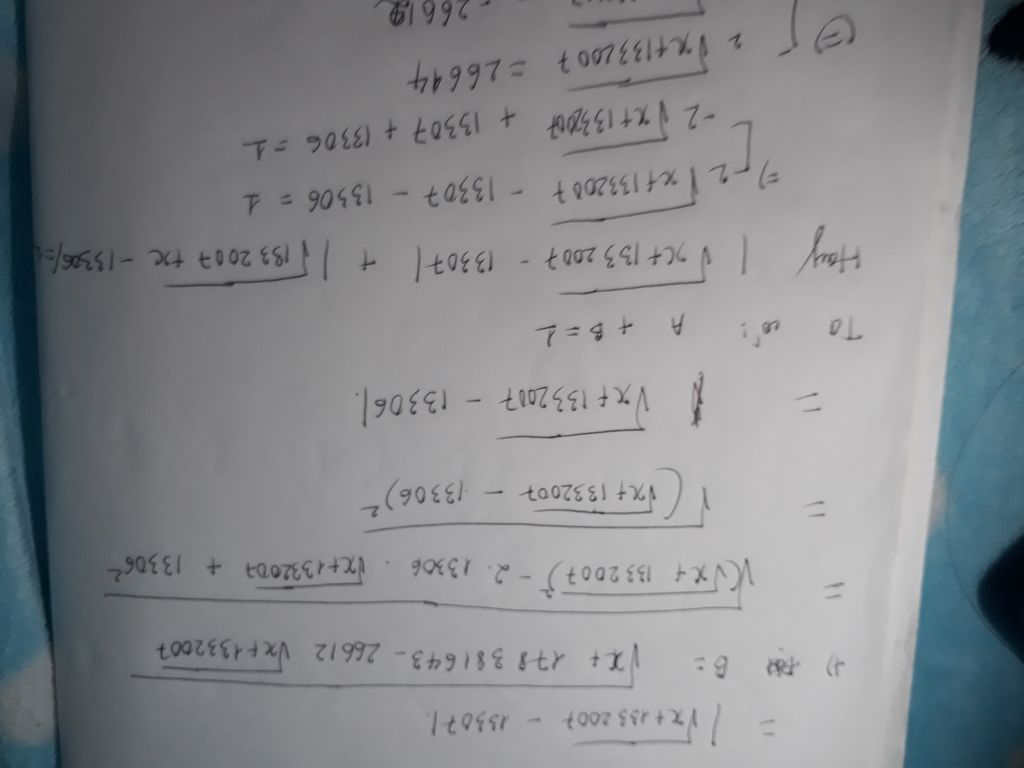 = |√x+1332007 - 13307|.
+) B = √x + 178381643 - 26612 √x+1332007
= √(√x + 1332007)² - 2. 13306 . √x+1332007 + 13306²
= √(√x+1332007 - 13306)²
= √x+1332007 - 13306|.
Ta có: A + B = 1
Hay |√x+1332007 - 13307| + |√1332007 +x - 13306|=1
=> [ 2√x+1332007 - 13307 - 13306 = 1
-2 √x+1332007 + 13307 + 13306 = 1
(=) [ 2 √x+1332007 = 26614